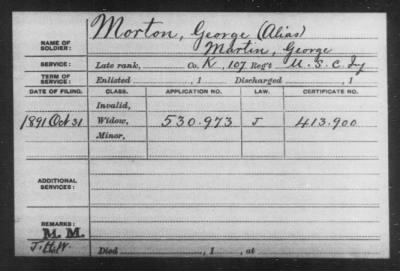 NAME OF SOLDIER: Morton, George (Alias)
Martin, George
SERVICE: Late rank, Co. K, 107 Reg't U. S. C. Iy
TERM OF SERVICE: Enlisted , 1 Discharged , 1
DATE OF FILING. CLASS. APPLICATION NO. LAW. CERTIFICATE NO.
Invalid,
1891 Oct 31 Widow, 530.973 J 413.900
Minor,
ADDITIONAL SERVICES:
REMARKS:
M. M.
J.H.W.
Died , 1 , at